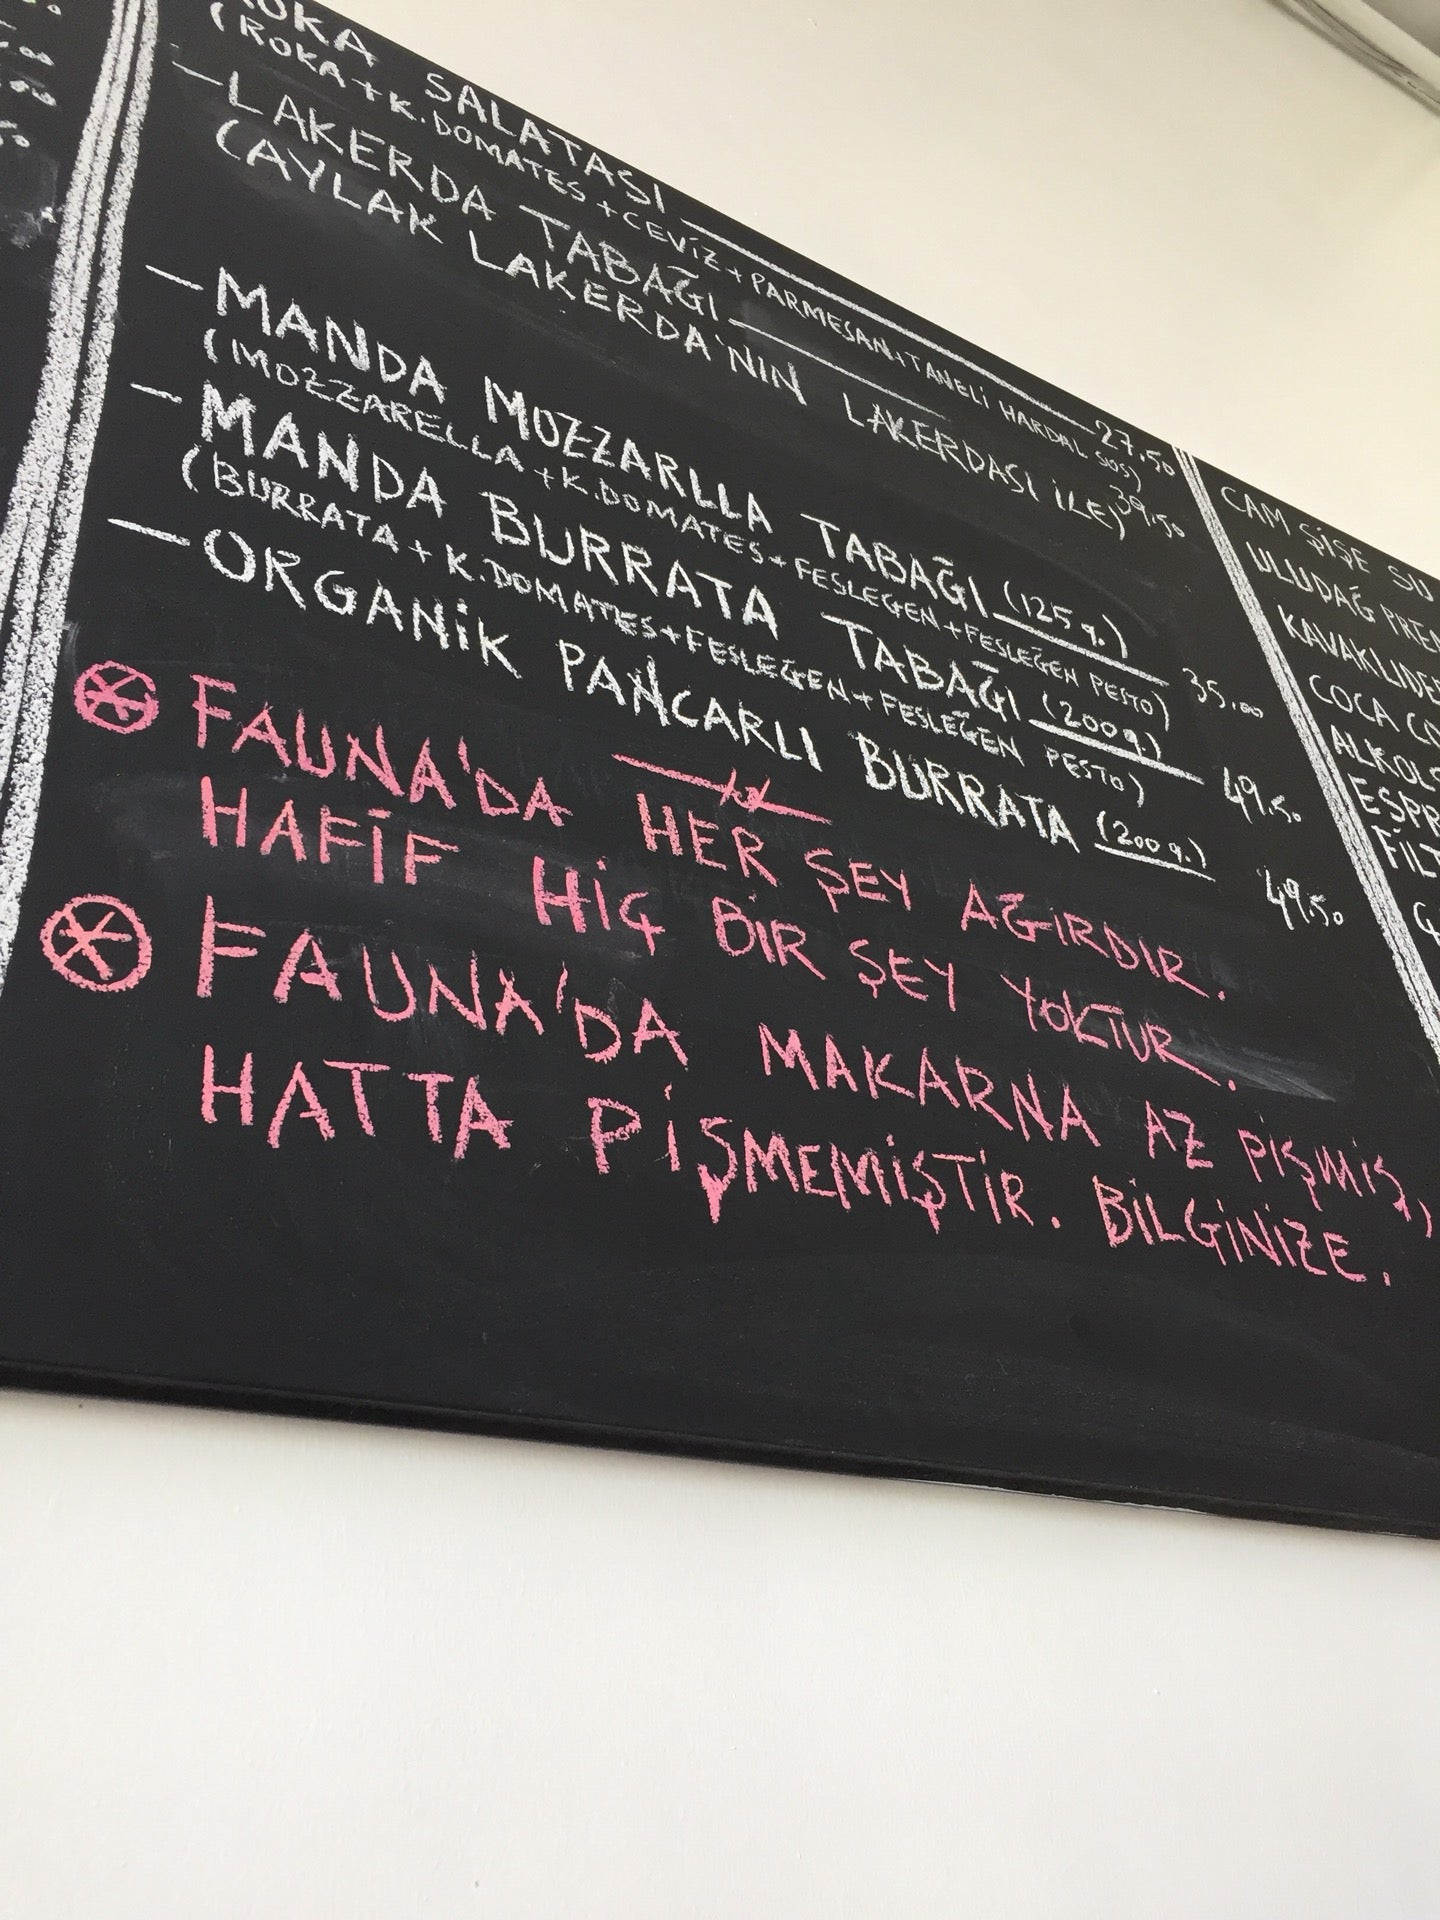 SALATASI 27.50
(ROKA + K.DOMATES + CEVİZ + PARMESAN + TANELİ HARDAL SOS)
- LAKERDA TABAĞI 39.50
(AYLAK LAKERDA'NIN LAKERDASI İLE)
- MANDA MOZZARLLA TABAĞI (125 g.) 35.00
(MOZZARELLA + K.DOMATES + FESLEGEN + FESLEĞEN PESTO)
- MANDA BURRATA TABAĞI (200 g.) 49.50
(BURRATA + K.DOMATES + FESLEGEN + FESLEĞEN PESTO)
- ORGANİK PANCARLI BURRATA (200 g.) 49.50
FAUNA'DA HER ŞEY AĞIRDIR.
HAFİF HİÇ BİR ŞEY YOKTUR.
FAUNA'DA MAKARNA AZ PİŞMİŞ,
HATTA PİŞMEMİŞTİR. BİLGİNİZE.
CAM ŞİŞE SU
ULUDAĞ
COCA